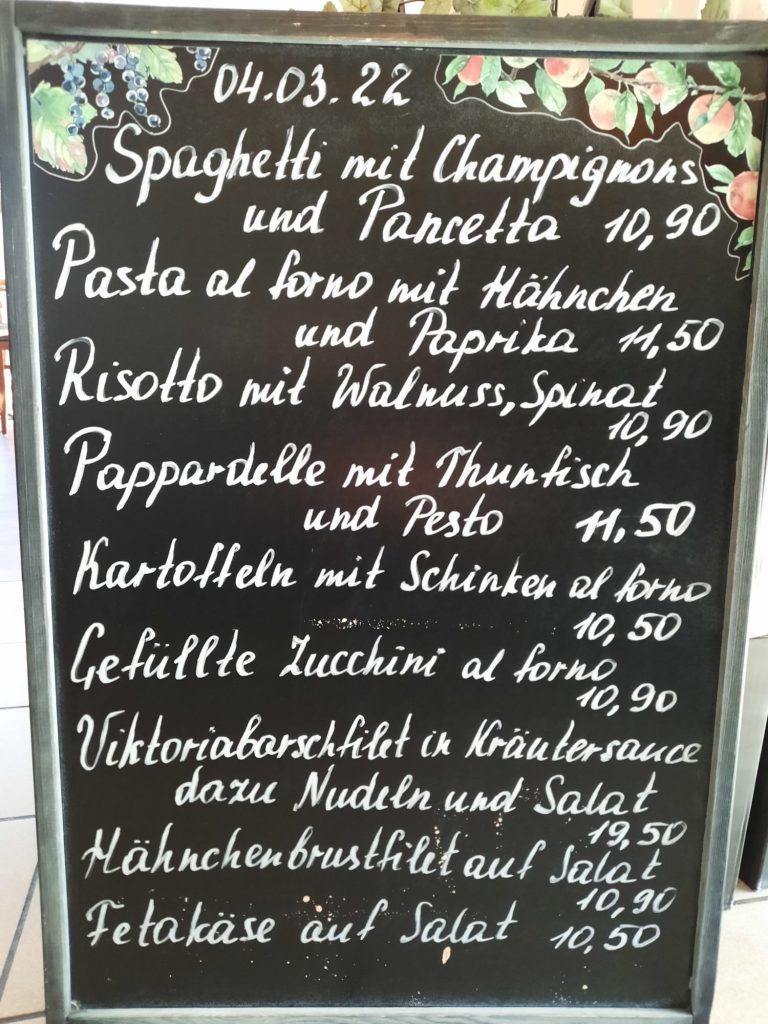 04.03.22
Spaghetti mit Champignons
und Pancetta 10,90
Pasta al forno mit Hähnchen
und Paprika 11,50
Risotto mit Walnuss, Spinat
10,90
Pappardelle mit Thunfisch
und Pesto 11,50
Kartoffeln mit Schinken al forno
10,50
Gefüllte Zucchini al forno
10,90
Viktoriabarschfilet in Kräutersauce
dazu Nudeln und Salat
19,50
Hähnchenbrustfilet auf Salat
10,90
Fetakäse auf Salat 10,50